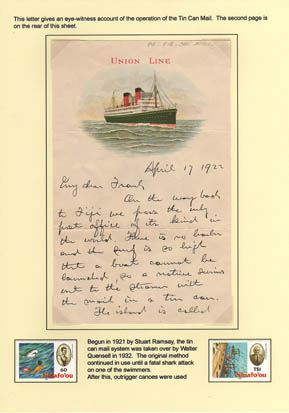 This letter gives an eye-witness account of the operation of the Tin Can Mail. The second page is
on the rear of this sheet.
UNION LINE
April 17 1922
My dear Frank,
On the way back
to Fiji we pass the only
post office of its kind in
the world. There is no harbor
and the surf is so high
that a boat cannot be
launched, so a native swims
out to the steamer with
the mail in a tin can.
The island is called
Begun in 1921 by Stuart Ramsay, the tin
can mail system was taken over by Walter
Quensell in 1932. The original method
continued in use until a fatal shark attack
on one of the swimmers.
After this, outrigger canoes were used
60
Niuafo'ou
T$1
Niuafo'ou